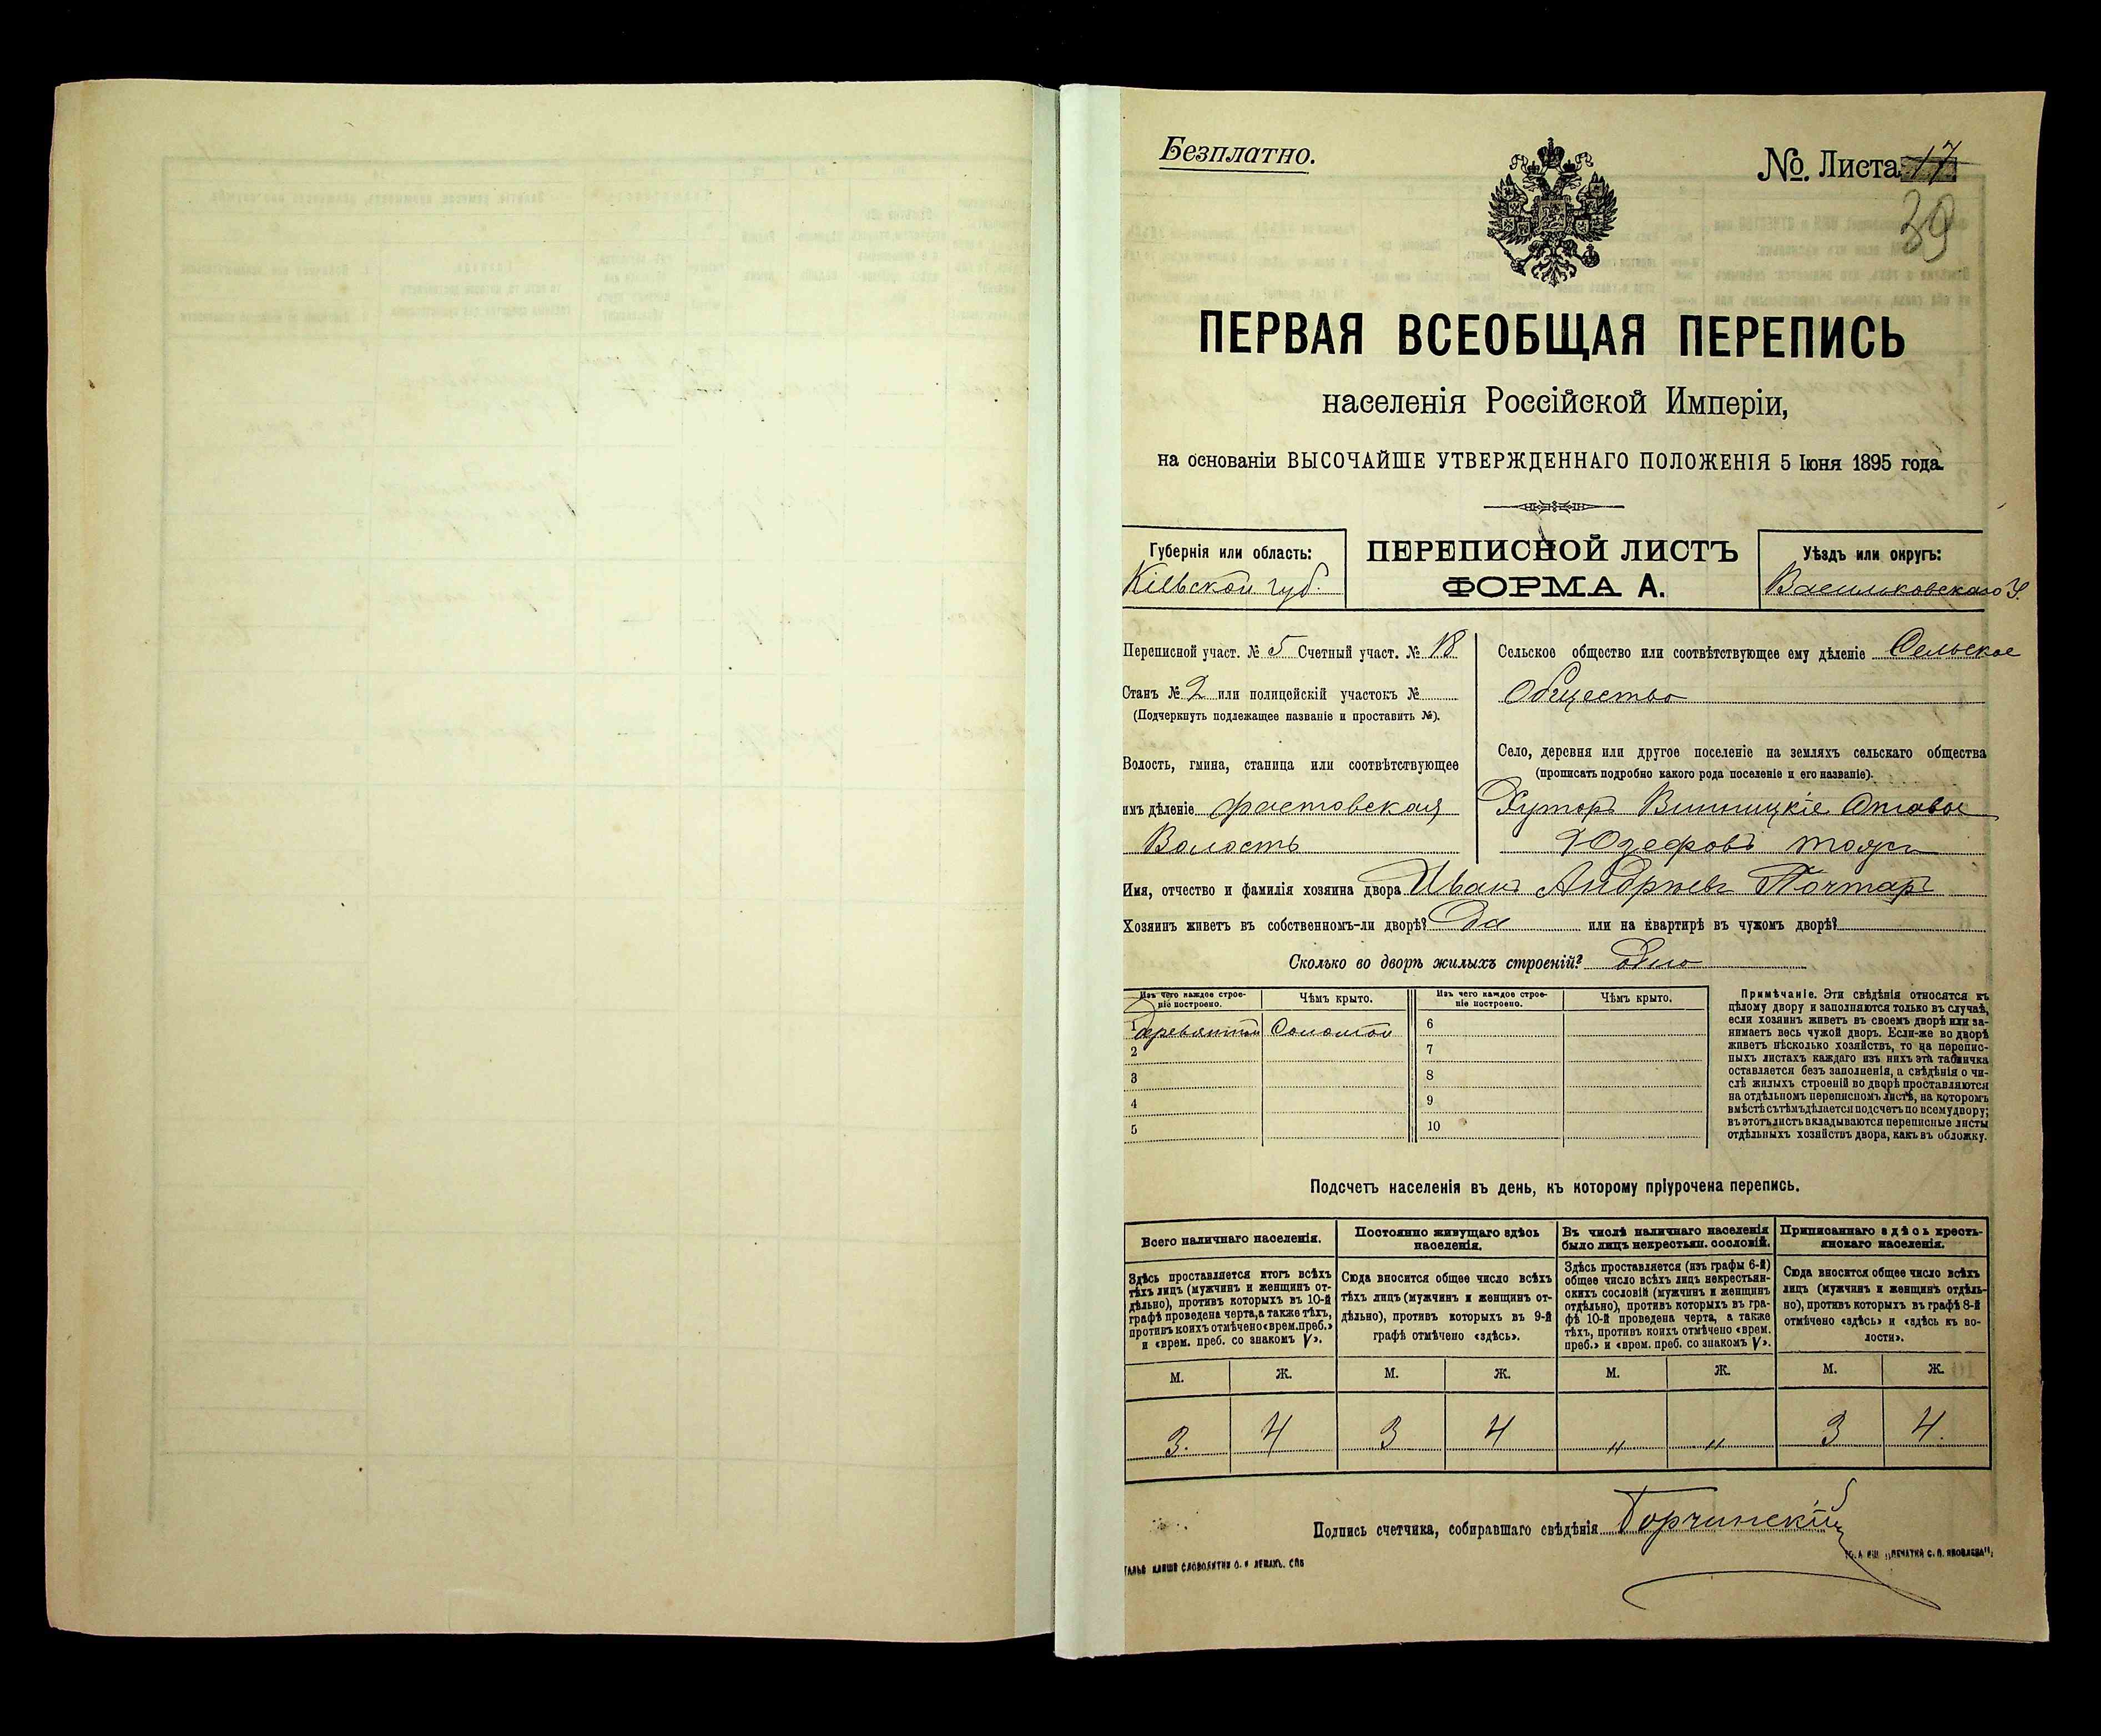 Безплатно.
№. Листа 17
39
ПЕРВАЯ ВСЕОБЩАЯ ПЕРЕПИСЬ
населенія Россійской Имперіи,
на основаніи ВЫСОЧАЙШЕ УТВЕРЖДЕННАГО ПОЛОЖЕНІЯ 5 Іюня 1895 года
Губернія или область:
Кіевской губ.
ПЕРЕПИСНОЙ ЛИСТЪ
ФОРМА А.
Уѣздъ или округъ:
Васильковскаго У.
Переписной участ. № 5 Счетный участ. № 18
Станъ № 2 или полицейскій участокъ №
(Подчеркнуть подлежащее названіе и проставить №).
Волость, гмина, станица или соотвѣтствующее
имъ дѣленіе Фастовская
Волость
Сельское общество или соотвѣтствующее ему дѣленіе Сельское
Общество
Село, деревня или другое поселеніе на земляхъ сельскаго общества
(прописать подробно какого рода поселеніе и его названіе).
Хуторъ Винницкіе Ставы
Юзефовъ тожъ
Имя, отчество и фамилія хозяина двора Иванъ Андреевъ Почтаръ
Хозяинъ живетъ въ собственномъ-ли дворѣ? Да или на квартирѣ въ чужомъ дворѣ?
Сколько во дворѣ жилыхъ строеній? одно
Изъ чего каждое строе-
ніе построено.
Чѣмъ крыто.
Изъ чего каждое строе-
ніе построено.
Чѣмъ крыто.
1 Соломой 6
2 7
3 8
4 9
5 10
Примѣчаніе. Эти свѣдѣнія относятся къ
цѣлому двору и заполняются только въ случаѣ,
если хозяинъ живетъ въ своемъ дворѣ или за-
нимаетъ весь чужой дворъ. Если-же во дворѣ
живетъ нѣсколько хозяйствъ, то на перепис-
ныхъ листахъ каждаго изъ нихъ эта табличка
оставляется безъ заполненія, а свѣдѣнія о чи-
слѣ жилыхъ строеній во дворѣ проставляются
на отдѣльномъ переписномъ листѣ, на которомъ
вмѣстѣ съ тѣмъ дѣлается подсчетъ по всему двору;
въ этотъ листъ вкладываются переписные листы
отдѣльныхъ хозяйствъ двора, какъ въ обложку.
Подсчетъ населенія въ день, къ которому пріурочена перепись.
Всего наличнаго населенія.
Здѣсь проставляется итогъ всѣхъ
тѣхъ лицъ (мужчинъ и женщинъ от-
дѣльно), противъ которыхъ въ 10-й
графѣ проведена черта, а также тѣхъ,
противъ коихъ отмѣчено «врем. преб.»
и «врем. преб. со знакомъ V».
Постоянно живущаго здѣсь
населенія.
Сюда вносится общее число всѣхъ
тѣхъ лицъ (мужчинъ и женщинъ от-
дѣльно), противъ которыхъ въ 9-й
графѣ отмѣчено «здѣсь».
Въ числѣ наличнаго населенія
было лицъ некрестьян. сословій.
Здѣсь проставляется (изъ графы 6-й)
общее число всѣхъ лицъ некрестьян-
скихъ сословій (мужчинъ и женщинъ
отдѣльно), противъ которыхъ въ гра-
фѣ 10-й проведена черта, а также
тѣхъ, противъ коихъ отмѣчено «врем.
преб.» и «врем. преб. со знакомъ V».
Приписаннаго здѣсь кресть-
янскаго населенія.
Сюда вносится общее число всѣхъ
лицъ (мужчинъ и женщинъ отдѣль-
но), противъ которыхъ въ графѣ 8-й
отмѣчено «здѣсь» и «здѣсь къ во-
лости».
М. Ж. М. Ж. М. Ж. М. Ж.
3. 4 3 4 " " 3 4.
Подпись счетчика, собиравшаго свѣдѣнія